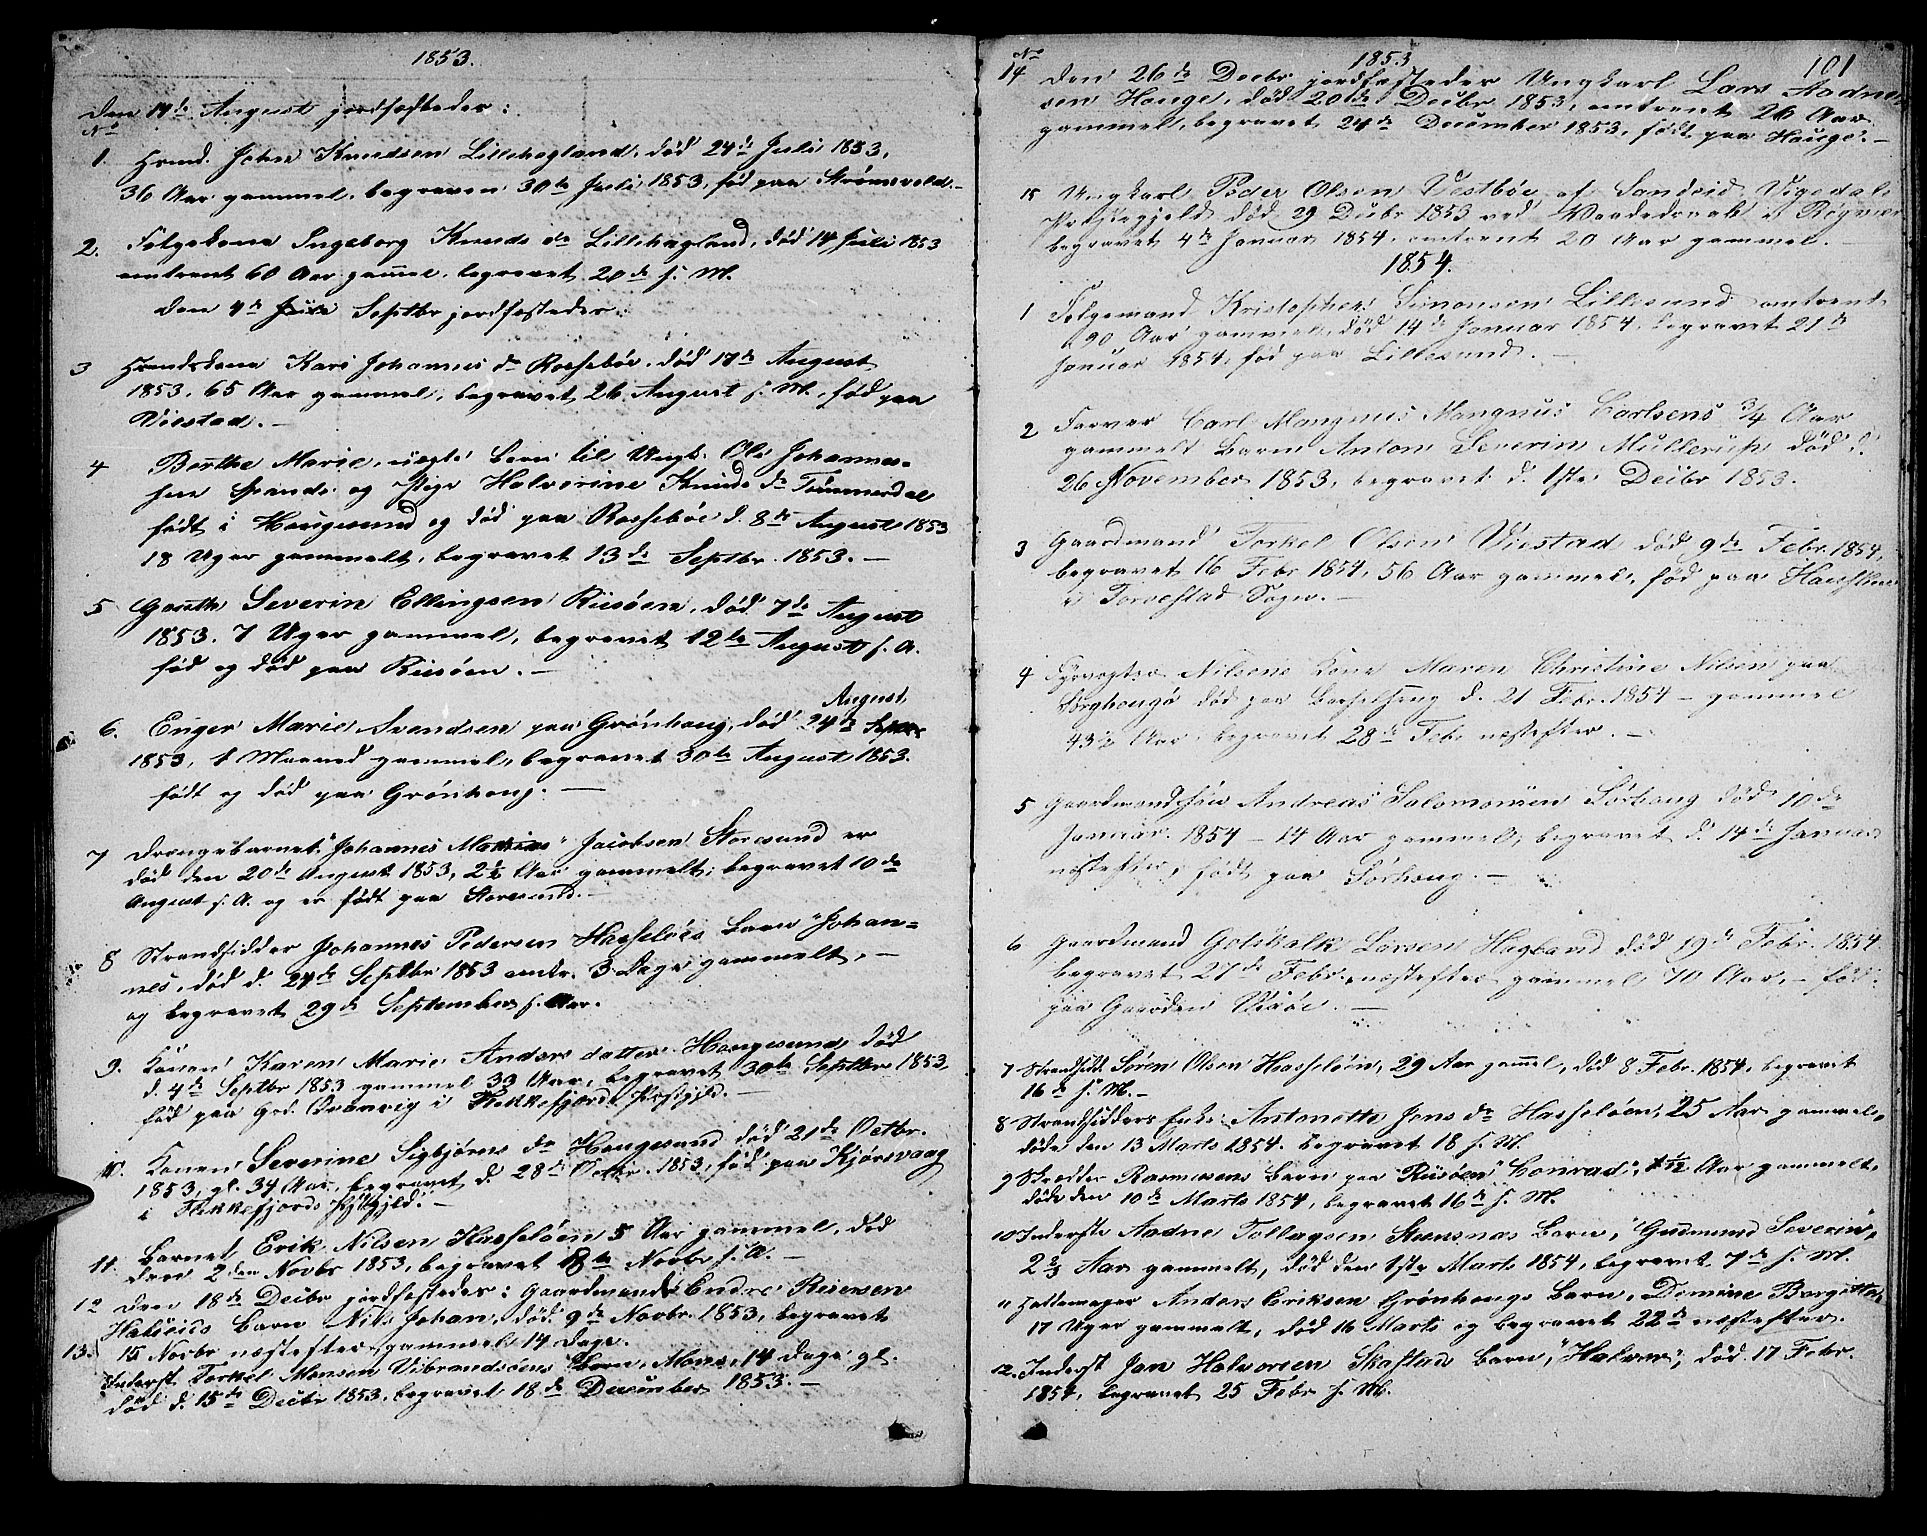 1853.
den 14de August jordfæstedes:
No
1. Hmd. John Knudsen Lillehagland, død 24de Juli 1853,
36 Aar gammel, begraven 30te Juli 1853, fød paa
2. Følgekone Ingeborg Knuds dr Lillehagland, død 14 Juli 1853
omtrent 60 Aar gammel, begravet 20de s. M.
den 4de Septbr jordfæstedes:
3 Kari Johannes dr Rossebøe, død 17de August
1853, 65 Aar gammel, begravet 26 August s. M., fød paa
Viestad.
4 Berthe Marie, uægte Barn til Ungk. Ole Johannes-
sen og Pige Halverine Knuds dr
født i Haugesund og død paa Rossebøe d. 8de August 1853
18 Uger gammelt, begravet 13de Septbr. 1853.
5 Severin Ellingsen Risøen, død 7de August
1853, 7 Uger gammel, begravet 12te August s. A.
fød og død paa Risøen.
August
6. Enger Marie Svendsen paa Grønhaug, død 24de
1853, 1 Maaned gammel, begravet 30te August 1853.
født og død paa Grønhaug.
7 Drengebarnet "Johannes Mathias" Jacobsen Storesund er
død den 20de August 1853, 2½ Aar gammelt; begravet 10de
August s. A. og er født paa Storesund.
8 Strandsidder Johannes Pedersen Hasseløes Barn "Johan-
nes, død d. 24de Septbr 1853 omtr. 3 Dage gammelt,
og begravet 29de September s. Aar.
9. Konen Karen Marie Anders datter Haugesund død
d. 4de Septbr 1853 gammel 33 Aar, begravet 30te Septbr 1853,
født paa Grd. i Flekkefjords Præstgjeld.
10. Konen Severine Sigbjørns dr Haugesund død 21de Octbr.
1853, gl. 34 Aar, begravet d. 28de Octbr. 1853, fød paa Kjørsvaag
i Flekkefjords
11. Barnet Erik Nilsen Hasseløen 5 Aar gammel, død
den 2den Novbr 1853, begravet 8de Novbr s. A.
12 Den 18de Decbr jordfæstedes: Gaardmand Endre Reiersen
Barn Nils Johan, død 9de Novbr. 1853, begravet
15 Novbr næstefter gammel 14 dage.
13. Inderst Torkel Monsen Vibrandsøens Barn, Mons, 14 dage gl.
død d. 15de Decbr 1853, begravet 18de December 1853.
No 1853 101
14 Den 26de Decbr jordfæstedes Ungkarl Lars Aadne-
sen Hauge, død 20de Decbr 1853, omtrent 26 Aar
gammel, begravet 24de December 1853, født paa Hauge.
15 Ungkarl Peder Olsen Vestbøe af Sandeid, Vigedals
Præstegjeld død 29 Decbr 1853 ved Vaadedraab i Røgvær
begravet 4de Januar 1854, omtrent 20 Aar gammel.
1854.
1 Følgemand Kristopher Simonsen Lillesund omtrent
90 Aar gammel, død 14de Januar 1854, begravet 21de
Januar 1854, fød paa Lillesund.
2 Farver Carl Mangnus Mangnus Carlsens ¾ Aar
gammelt Barn Anton Severin Mullerup død d.
26 November 1853, begravet d. 1ste Decbr 1853.
3 Gaardmand Torkel Olsen Viestad død 9de Febr. 1854,
begravet 16 Febr 1854, 56 Aar gammel, fød paa
i Torvestad Sogn.
4 Fyrvogter Nilsens Kone Maren Christine Nilsen paa
Sørhaugø død paa d. 21 Febr. 1854 – gammel
43½ Aar. begravet 28de Febr næstefter.
5 Gaardmandssøn Andreas Salomonsen Sørhaug død 10de
Januar 1854 – 14 Aar gammel, begravet d. 14de Januar
næstefter, født paa Sørhaug.
6 Gaardmand Gotskalk Larsen Hagland død 19de Febr. 1854
begravet 27de Febr. næstefter gammel 70 Aar, – fød
paa Gaarden
7 Strandsidd. Søren Olsen Hasseløen, 29 Aar gammel, død 8 Febr. 1854, begravet
16de s. M.
8 Strandsidders Enke Antonette Jens dr Hasseløen, 25 Aar gammel,
døde den 13 Marts 1854. begravet 18 s. M.
9 Skrædder Rasmusens Barn paa Risøen "Conrad", 1½ Aar gammelt,
døde den 10de Marts 1854, begravet 16de s. M.
10 Inderste Aadne Tollagsen Steensnæs Barn, "Gudmund Severin",
2⅔ Aar gammelt, død den 1ste Marts 1854, begravet 7de s. M.
11 Hattemager Anders Eriksen Grønhaugs Barn, Demine Bergitte,
17 Uger gammelt, død 16 Marts og begravet 22de næstefter.
12. Inderst Jan Halvorsen Skastad Barn, "Halvor", død 17 Febr.
1854, begravet 25 Febr s. M.